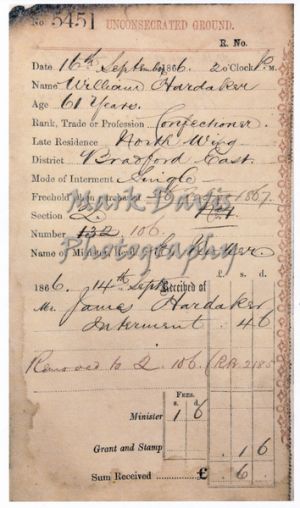 No. 5451 UNCONSECRATED GROUND.
R. No.
Date 16th September 1866. 2 o'Clock P. M.
Name William Hardaker
Age 61 Years.
Rank, Trade or Profession Confectioner
Late Residence North Wing
District Bradford East.
Mode of Interment Single
Freehold 1867.
Section Q.
Number 132 106.
Name of Minister
£ s. d.
1866. 14th Sept. Received of
Mr. James Hardaker
Interment : 4 6
Removed to Q. 106. (R.N. 2185
FEES.
s. d.
Minister 1 6
Grant and Stamp . 1 6
Sum Received £ . 6 .
Mark Davis
Photography